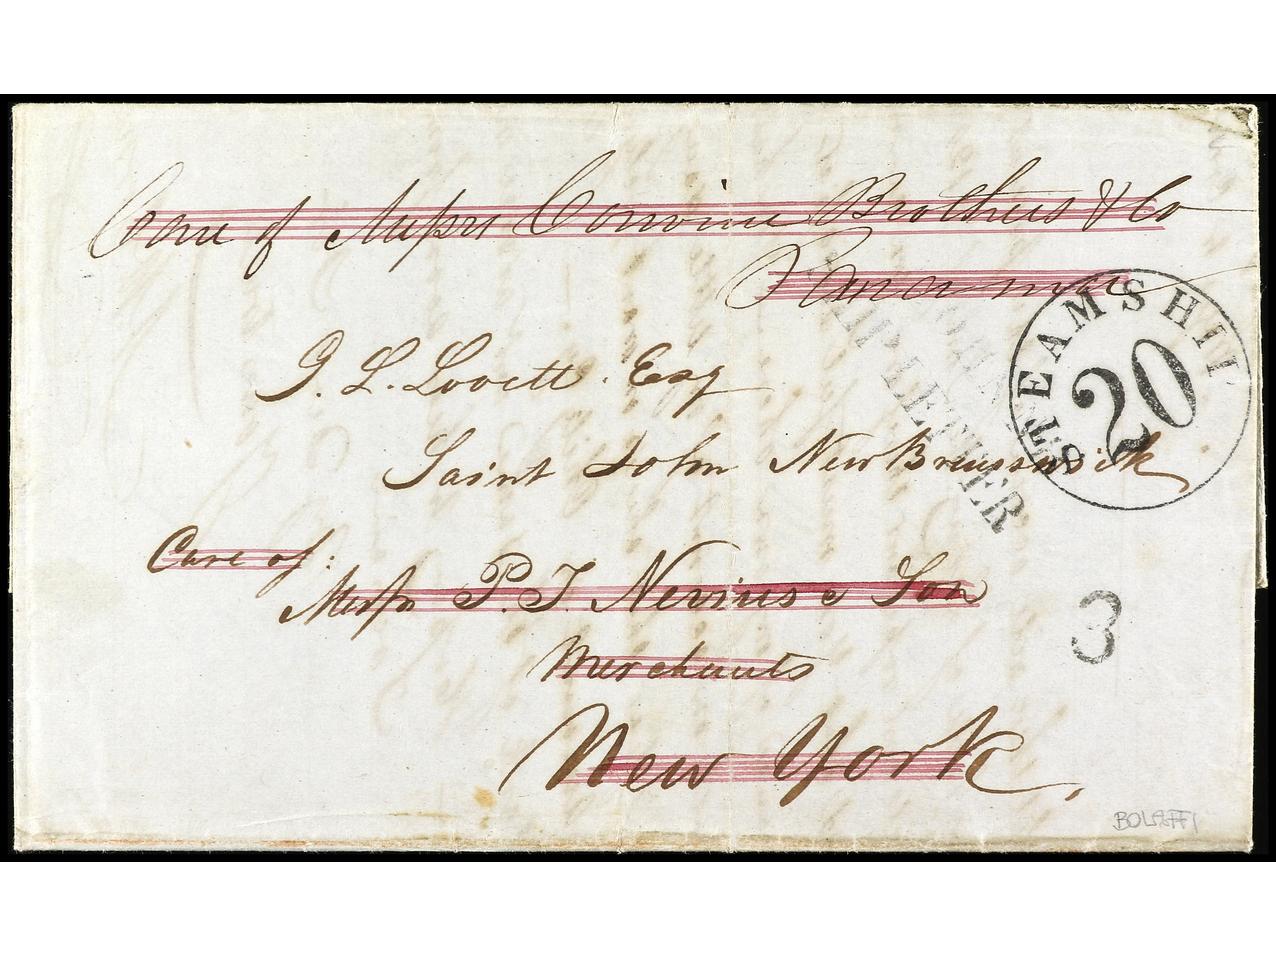 Care of Messrs Corwine Brothers & Co
Panama
SHIP LETTER
STEAMSHIP
20
J. L. Lovett. Esq
Saint John New Brunswick
Care of:
Messrs P. T. Nevius & Son
3
Merchants
New York.
BOLAFFI